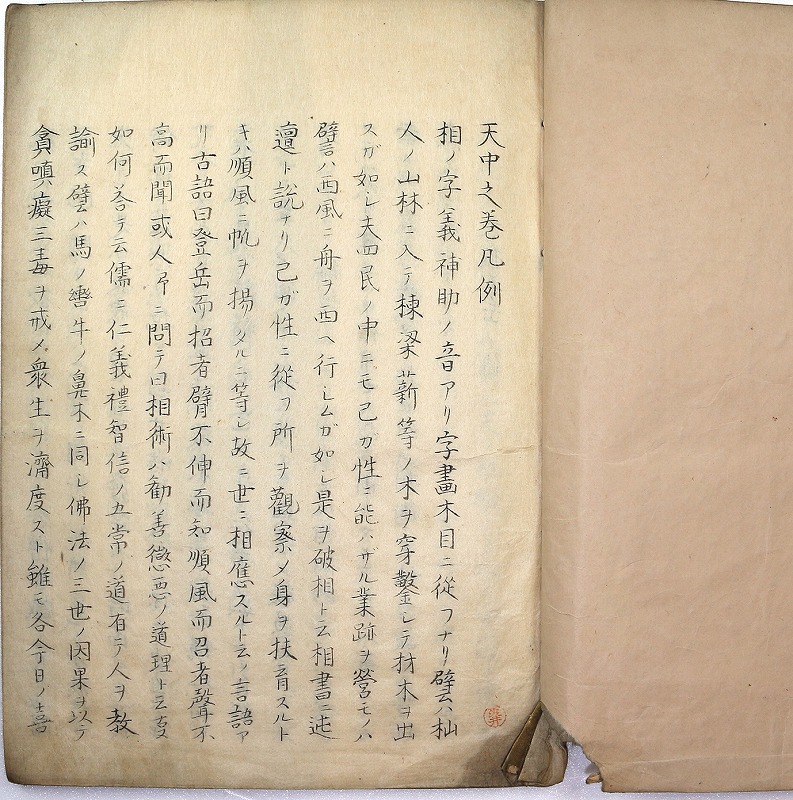 天中之巻凡例
相ノ字義補助ノ音アリ字畫木目ニ從フナリ譬ハ杣
人ノ山林ニ入テ棟梁薪等ノ木ヲ穿鑿シテ材木ヲ出
スガ如シ夫四民ノ中ニモ己ガ性ニ能ハザル業跡ヲ營モノハ
譬ハ西風ニ舟ヲ西ヘ行シムガ如シ是ヲ破相ト云相書ニ迍
邅ト説ナリ己ガ性ニ從フ所ヲ觀察メ身ヲ扶育スルト
キハ順風ニ帆ヲ揚タルニ等シ故ニ世ニ相應スルト云ノ言語ア
リ古語曰登岳而招者臂不伸而知順風而召者聲不
高而聞或人予ニ問テ曰相術ハ勸善懲悪ノ道理ト云夏
如何荅テ云儒ニ仁義禮智信ノ五常ノ道有テ人ヲ教
諭ス譬ハ馬ノ轡牛ノ鼻木ニ同シ佛法ノ三世ノ因果ヲ以テ
貪嗔癡三毒ヲ戒メ衆生ヲ濟度スト雖モ各今日ノ喜